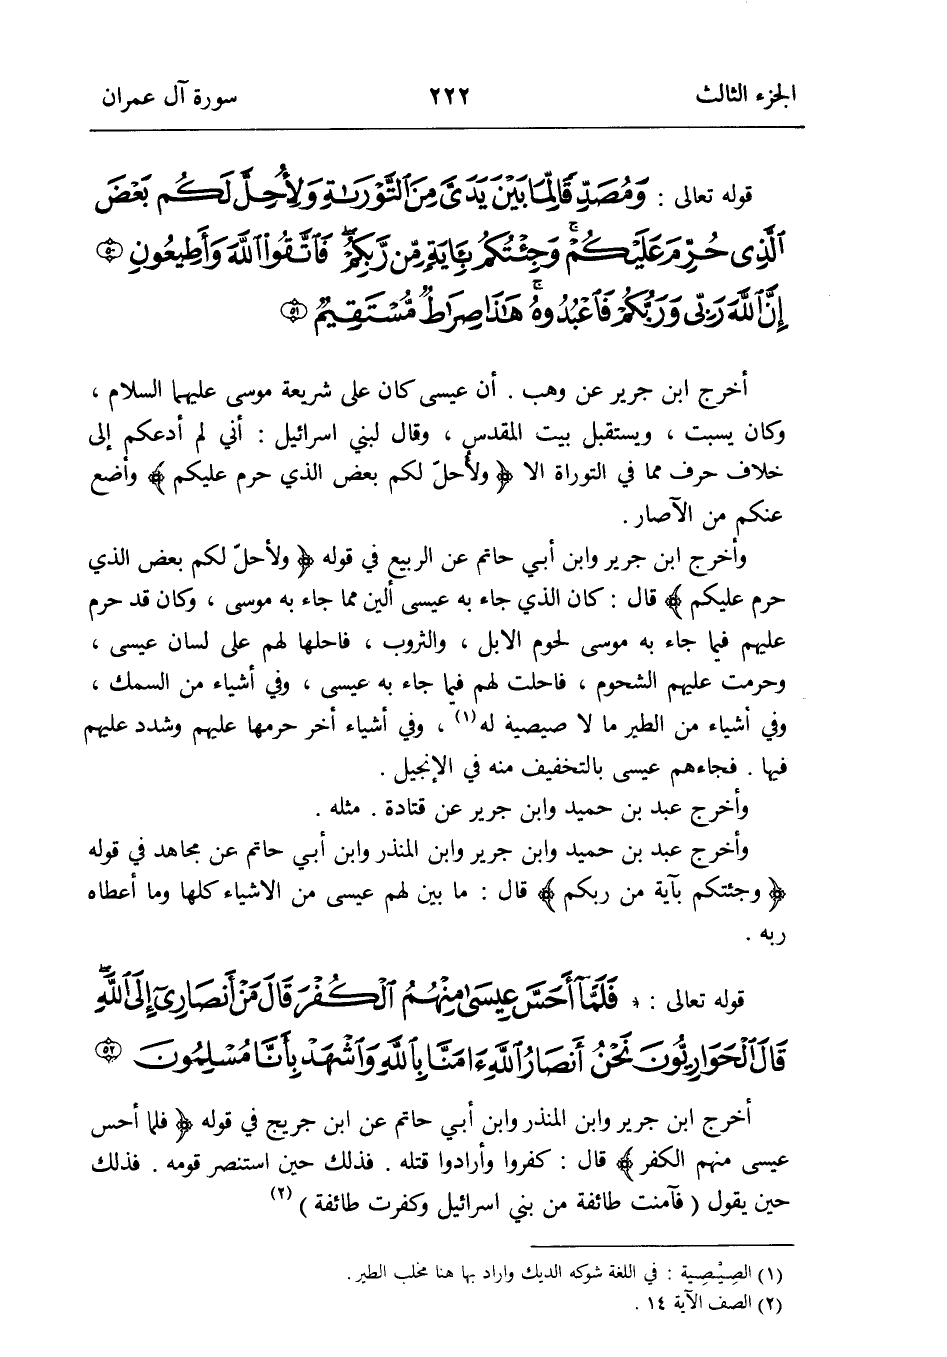 الجزء الثالث ٢٢٢ سورة آل عمران
قوله تعالى : وَمُصَدِّقًا لِّمَا بَيْنَ يَدَىَّ مِنَ ٱلتَّوْرَىٰةِ وَلِأُحِلَّ لَكُم بَعْضَ
ٱلَّذِى حُرِّمَ عَلَيْكُمْ ۚ وَجِئْتُكُم بِـَٔايَةٍ مِّن رَّبِّكُمْ ۖ فَٱتَّقُوا۟ ٱللَّهَ وَأَطِيعُونِ ۝٥٠
إِنَّ ٱللَّهَ رَبِّى وَرَبُّكُمْ فَٱعْبُدُوهُ ۚ هَٰذَا صِرَٰطٌ مُّسْتَقِيمٌ ۝٥١
أخرج ابن جرير عن وهب . أن عيسى كان على شريعة موسى عليهما السلام ،
وكان يسبت ، ويستقبل بيت المقدس ، وقال لبني اسرائيل : أني لم أدعكم إلى
خلاف حرف مما في التوراة الا ﴿ ولأحلّ لكم بعض الذي حرم عليكم ﴾ وأضع
عنكم من الآصار .
وأخرج ابن جرير وابن أبي حاتم عن الربيع في قوله ﴿ ولأحلّ لكم بعض الذي
حرم عليكم ﴾ قال : كان الذي جاء به عيسى ألين مما جاء به موسى ، وكان قد حرم
عليهم فيما جاء به موسى لحوم الابل ، والثروب ، فاحلها لهم على لسان عيسى ،
وحرمت عليهم الشحوم ، فاحلت لهم فيما جاء به عيسى ، وفي أشياء من السمك ،
وفي أشياء من الطير ما لا صيصية له (١) ، وفي أشياء أخر حرمها عليهم وشدد عليهم
فيها . فجاءهم عيسى بالتخفيف منه في الإنجيل .
وأخرج عبد بن حميد وابن جرير عن قتادة . مثله .
وأخرج عبد بن حميد وابن جرير وابن المنذر وابن أبي حاتم عن مجاهد في قوله
﴿ وجئتكم بآية من ربكم ﴾ قال : ما بين لهم عيسى من الاشياء كلها وما أعطاه
ربه .
قوله تعالى : * فَلَمَّآ أَحَسَّ عِيسَىٰ مِنْهُمُ ٱلْكُفْرَ قَالَ مَنْ أَنصَارِىٓ إِلَى ٱللَّهِ ۖ
قَالَ ٱلْحَوَارِيُّونَ نَحْنُ أَنصَارُ ٱللَّهِ ءَامَنَّا بِٱللَّهِ وَٱشْهَدْ بِأَنَّا مُسْلِمُونَ ۝٥٢
أخرج ابن جرير وابن المنذر وابن أبي حاتم عن ابن جريج في قوله ﴿ فلما أحس
عيسى منهم الكفر ﴾ قال : كفروا وأرادوا قتله . فذلك حين استنصر قومه . فذلك
حين يقول ( فآمنت طائفة من بني اسرائيل وكفرت طائفة ) (٢)
(١) الصِيْصِية : في اللغة شوكه الديك واراد بها هنا مخلب الطير .
(٢) الصف الآية ١٤ .